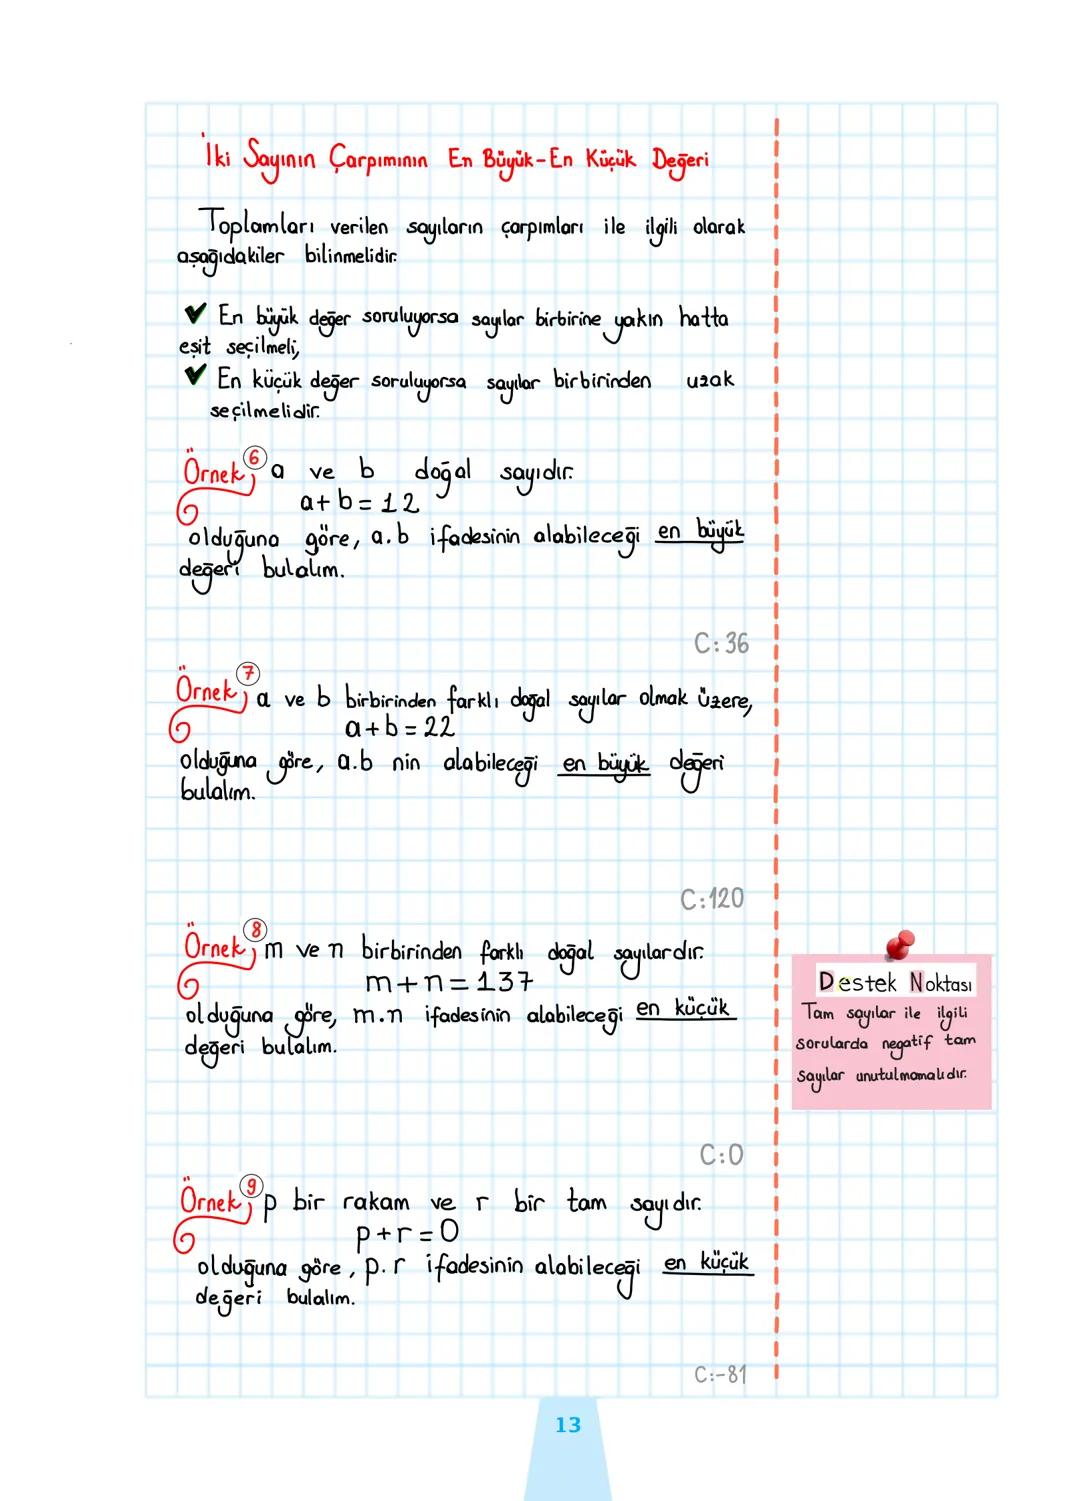 İki Sayının Çarpımının En Büyük-En Küçük Değeri
Toplamları verilen sayıların çarpımları ile ilgili olarak
aşağıdakiler bilinmelidir.
✔ En büyük değer soruluyorsa sayılar birbirine yakın hatta
eşit seçilmeli,
✔ En küçük değer soruluyorsa sayılar birbirinden uzak
seçilmelidir.
Örnek 6; a ve b doğal sayıdır.
a+b=12
olduğuna göre, a.b ifadesinin alabileceği en büyük
değeri bulalım.
C: 36
Örnek 7; a ve b birbirinden farklı doğal sayılar olmak üzere,
a+b=22
olduğuna göre, a.b nin alabileceği en büyük değeri
bulalım.
C:120
Örnek 8; m ve n birbirinden farklı doğal sayılardır.
m+n=137
olduğuna göre, m.n ifadesinin alabileceği en küçük
değeri bulalım.
C:0
Destek Noktası
Tam sayılar ile ilgili
sorularda negatif tam
sayılar unutulmamalıdır.
Örnek 9; p bir rakam ve r bir tam sayıdır.
p+r=0
olduğuna göre, p.r ifadesinin alabileceği en küçük
değeri bulalım.
C:-81
13